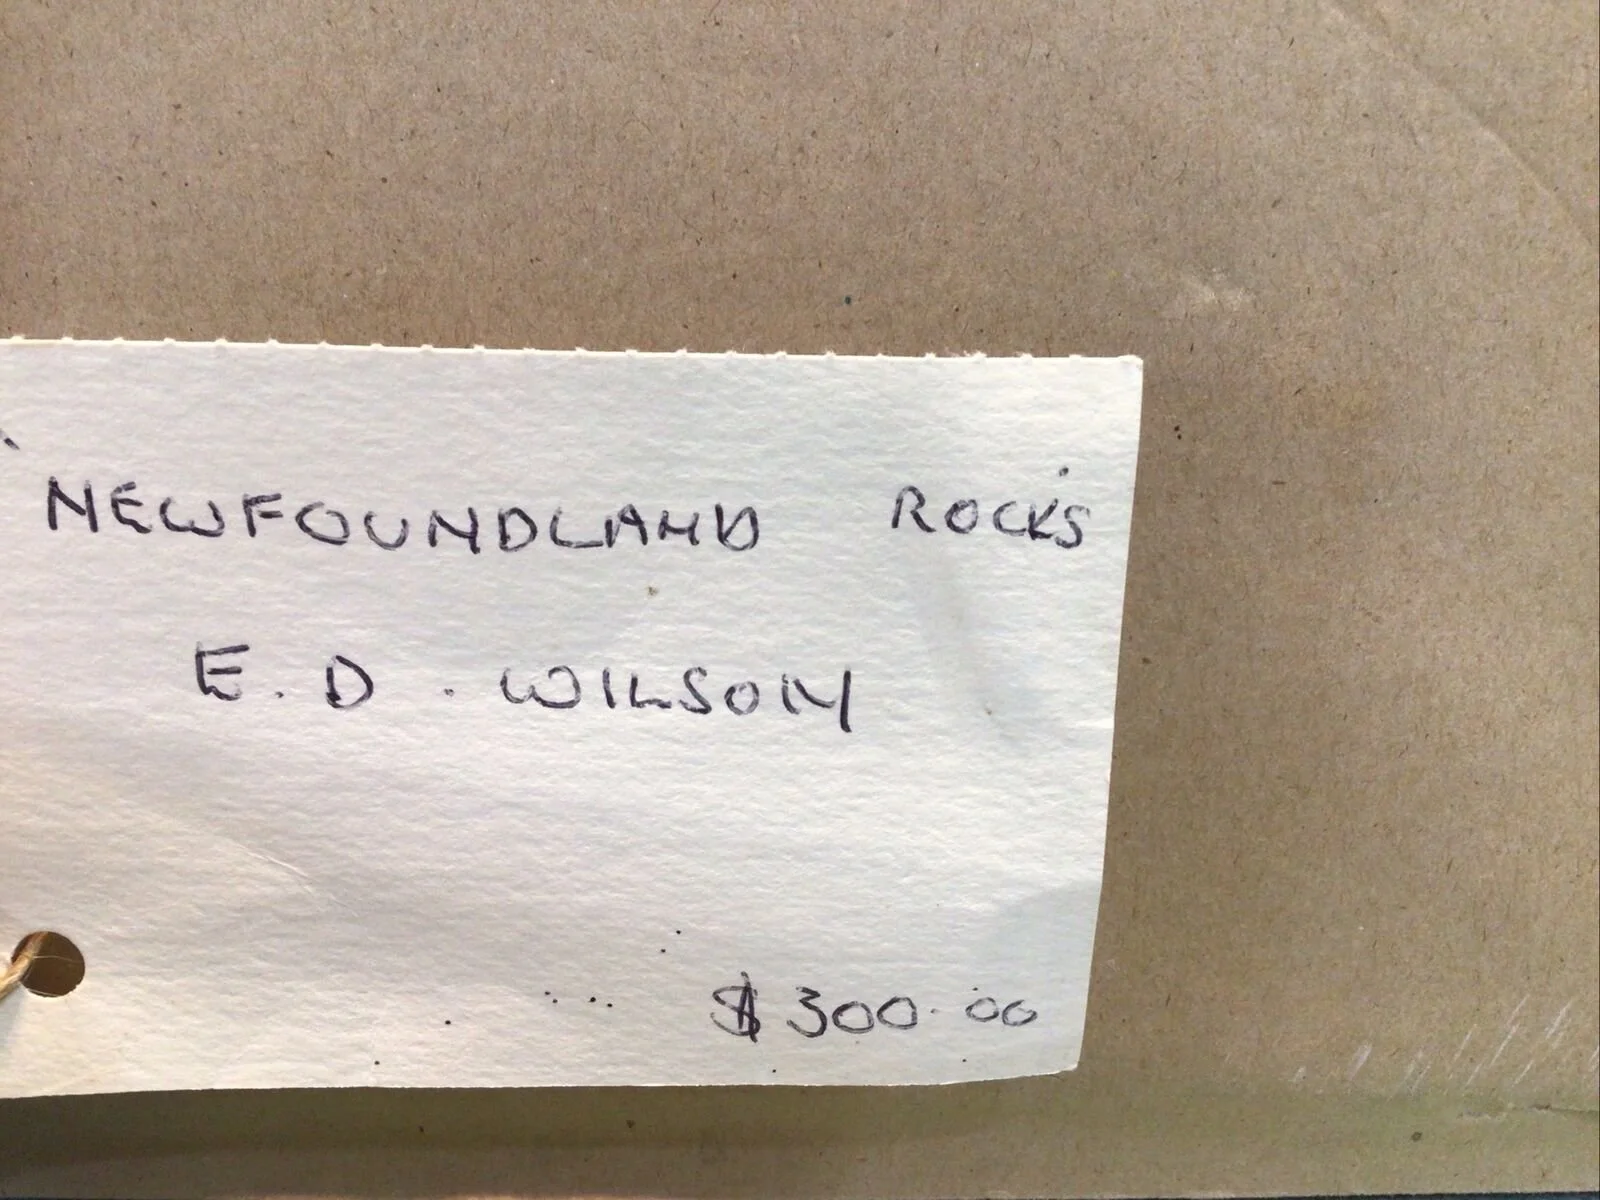 NEWFOUNDLAND ROCKS
E. D. WILSON
$300.00